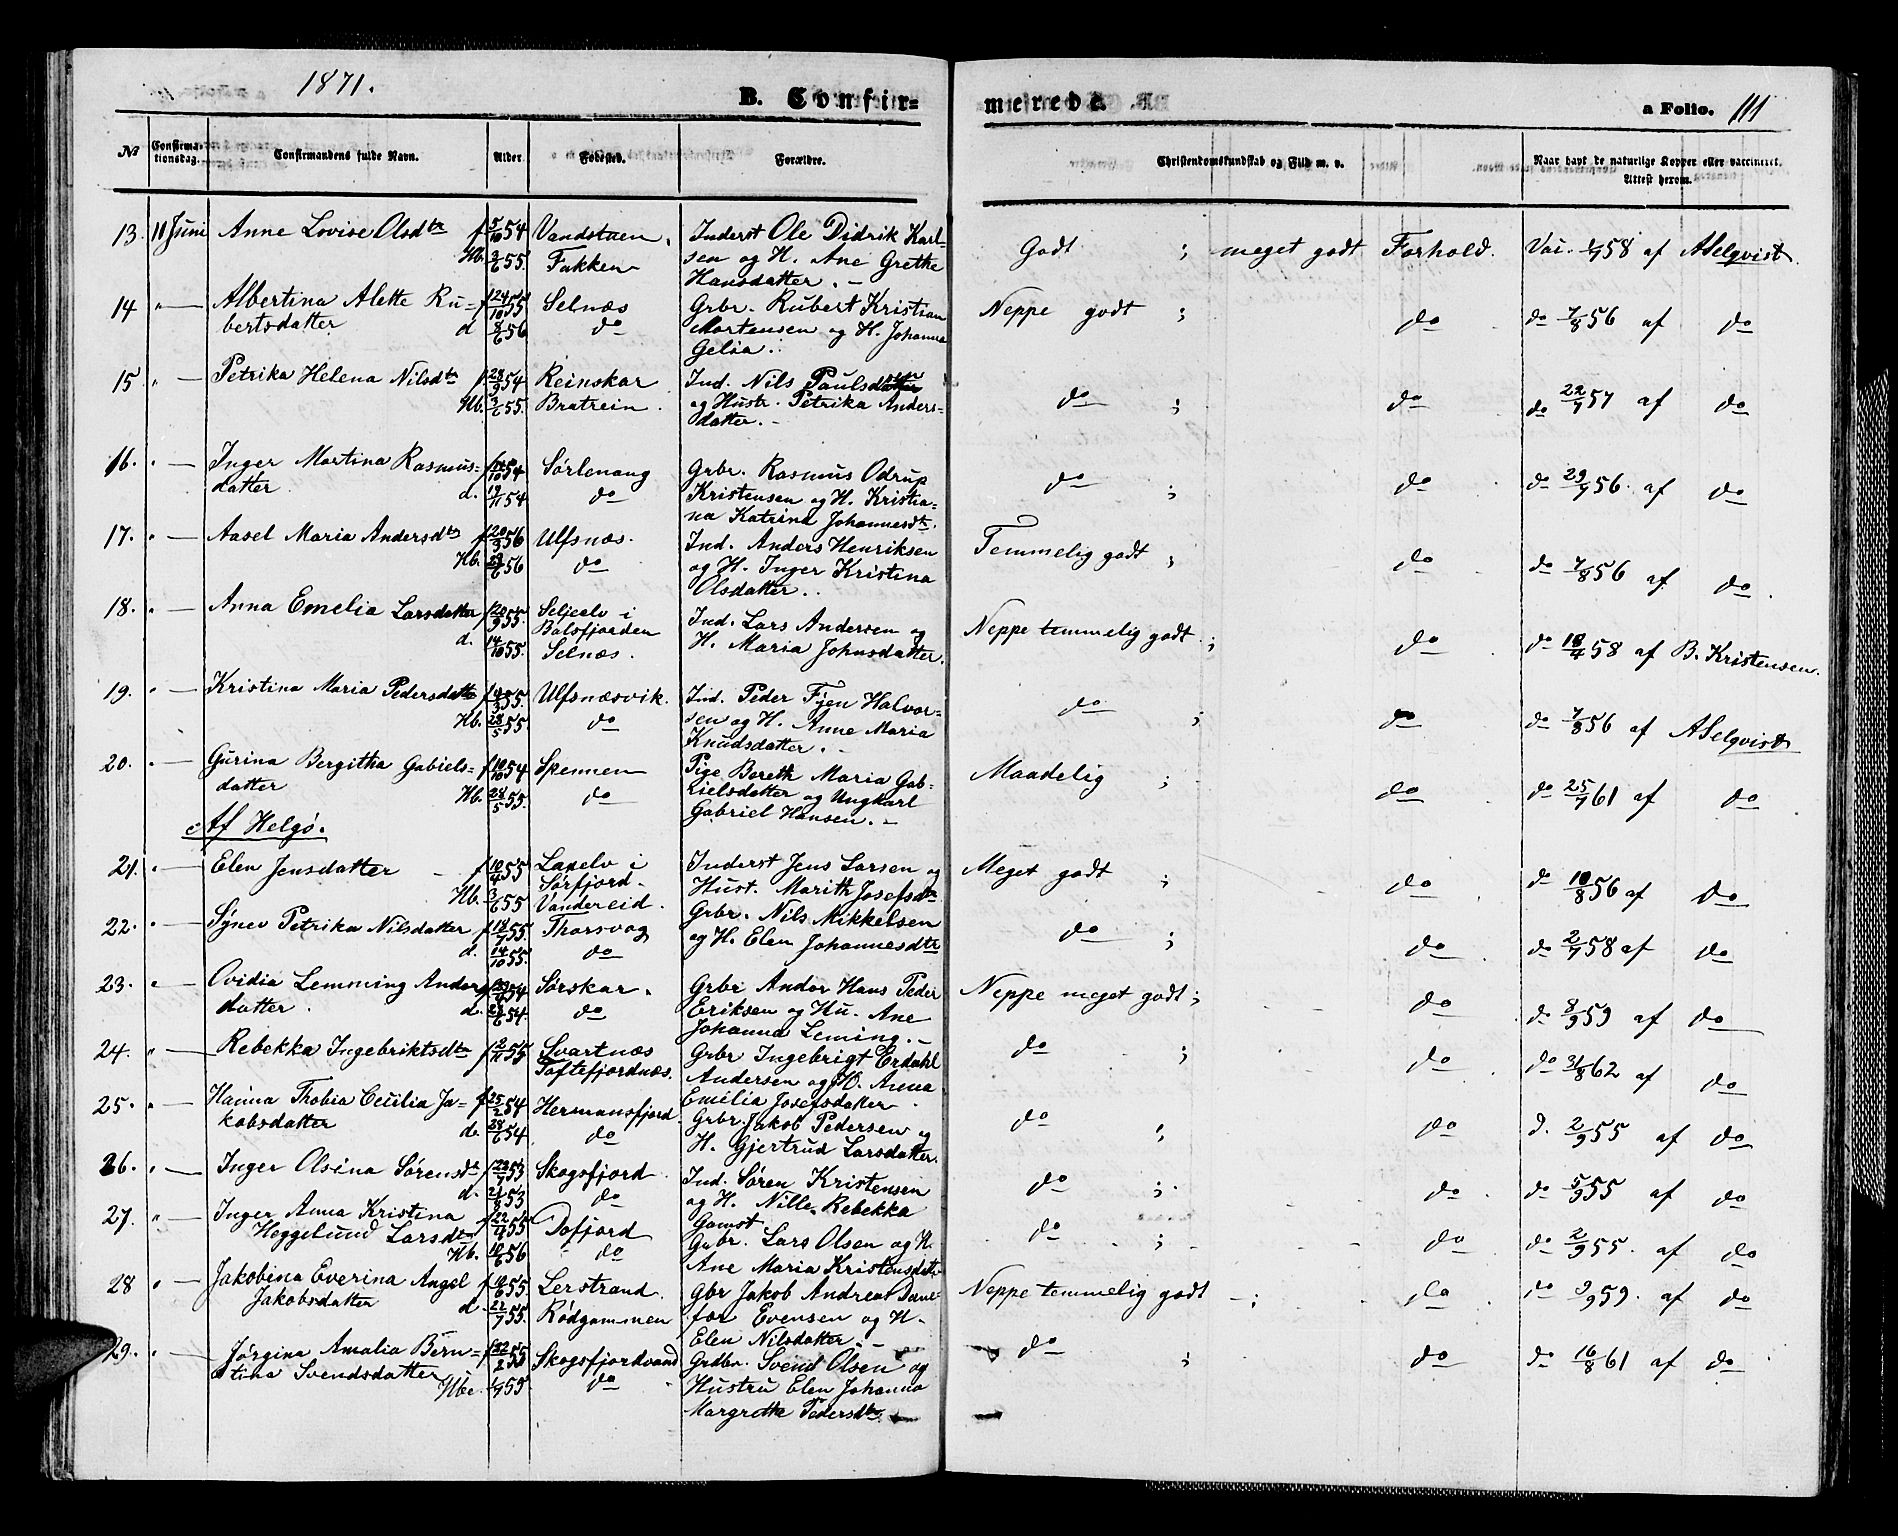 1871.
B. Confir=
merede.
a Folio. 111
No
Confirma-
tionsdag.
Confirmandens fulde Navn.
Alder.
Fødested.
Forældre.
Christendomskundskab og Flid m. v.
Naar havt de naturlige Kopper eller vaccineret.
Attest herom.
13. 11 Juni Anne Lovise Olsdtr f 5/10 54 Vandstuen. Inderst Ole Didrik Karl-
Hb. 3/6 55. Fakken sen og H. Ane Grethe
Hansdatter. -
Godt ; meget godt Forhold. Vac. 58 af ASelqvist.
14 " Albertina Alette Ru- f 24/10 55 Selnæs Grbr. Rubert Kristian
bertsdatter d 8/6 56 do Mortensen og H. Johanna
Geløa.
Neppe godt ; do do 7/8 56 af do
15 " Petrika Helena Nilsdtr f 28/9 54 Reinskar Ind. Nils Paulsen
Hb. 3/6 55. Bratrein. og Hustr. Petrika Anders-
datter. -
do ; do do 22/7 57 af do
16. " Inger Martina Rasmus- f /10 54 Sørlenang Grbr. Rasmus Odrup
datter d. 19/11 54 do Kristensen og H. Kristia-
na Katrina Johannesdtr.
do ; do do 29/7 56. af do
17. " Aasel Maria Andersdtr f 20/3 56 Ulfsnæs. Ind. Anders Henriksen
Hb. /6 56 do og H. Inger Kristina
Olsdatter.
Temmelig godt ; do do 7/8 56 af do.
18. " Anna Emelia Larsdatter f 20/9 55. Seljeelv i
Balsfjorden Ind. Lars Andersen og
d. 14/10 55. Selnæs. H. Maria Johnsdatter.
Neppe temmelig godt. ; do do 18/4 58 af B. Kristensen.
19. " Kristina Maria Pedersdatte f 4/3 55. Ulfsnæsvik. Ind. Peder Fyen Halvor-
Hb. 28/5 55. do sen og H. Anne Maria
Knudsdatter. -
do ; do do 7/8 56 af ASelqvist
20. " Gurina Bergitha Gabiels- f 10/10 54 Spennen Pige Bereth Maria Gab-
datter Hb. 28/5 55. do rielsdatter og Ungkarl
Gabriel Hansen. -
Maadelig ; do do 25/7 61 af do
Af Helgø.
21. " Elen Jensdatter f 10/4 55 Laxelv i
Sørfjord. Inderst Jens Larsen og
Hb. 3/6 55 Vandereid. Hust. Marith Josefsdtr
Meget godt ; do do 10/8 56 af do
22. " Synev Petrika Nilsdatter f 18/7 55. Thorsvag Grbr. Nils Mikkelsen
d. 14/10 55. do og H. Elen Johannesdtr
do ; do do 2/7 58 af do
23. " Ovidia Lemming Andors 54 Sørskar. Grbr Andor Hans Peder
datter. d. /6 54. do Eriksen og Hu. Ane
Johanna Leming. -
Neppe meget godt ; do do 8/9 59 af do
24. " Rebekka Ingebriktsdtr f 2/11 55 Svartnæs
Toftefjordnæs. Grbr Ingebrigt Erdahl
Andersen og H. Anna
Emilia Josefsdatter.
do ; do do 3/8 62 af do
25. " Hanna Thobia Cecilia Ja- f 25/2 54 Hermansfjord Grbr. Jakob Pedersen og
kobsdatter d. 28/6 54. do H. Gjertrud Larsdatter.
do ; do d. 2/9 55 af do
26. " Inger Olsina Sørensdt f 22/7 53 Skogsfjord. Ind. Søren Kristensen
d. 53 do og H. Nille Rebekka
Gamst.
do ; do do 5/9 55 af do
27. " Inger Anna Kristina f 22/9 55 Dofjord Grbr. Lars Olsen og H.
Heggelund Larsdtr Hb. 10/6 56 do Ane Maria Kristensdtr
do ; do do 2/9 55. af do
28 " Jakobina Everina Angel f 10/6 55. Lerstrand. Gbr Jakob Andreas Dane-
Jakobsdatter d. 22/7 55. Rødgammen for Evensen og H.
Elen Nilsdatter. -
Neppe temmelig godt ; do do 3/9 59. af do
29. " Jørgina Amalia Bern- f 22/2 55 Skogsfjordvand Grdbr. Svend Olsen og
tina Svendsdatter Hbe. 1/7 55. do Hustru Elen Johanna
Margrethe Pedersdtr.
do ; do do 16/8 61 af do